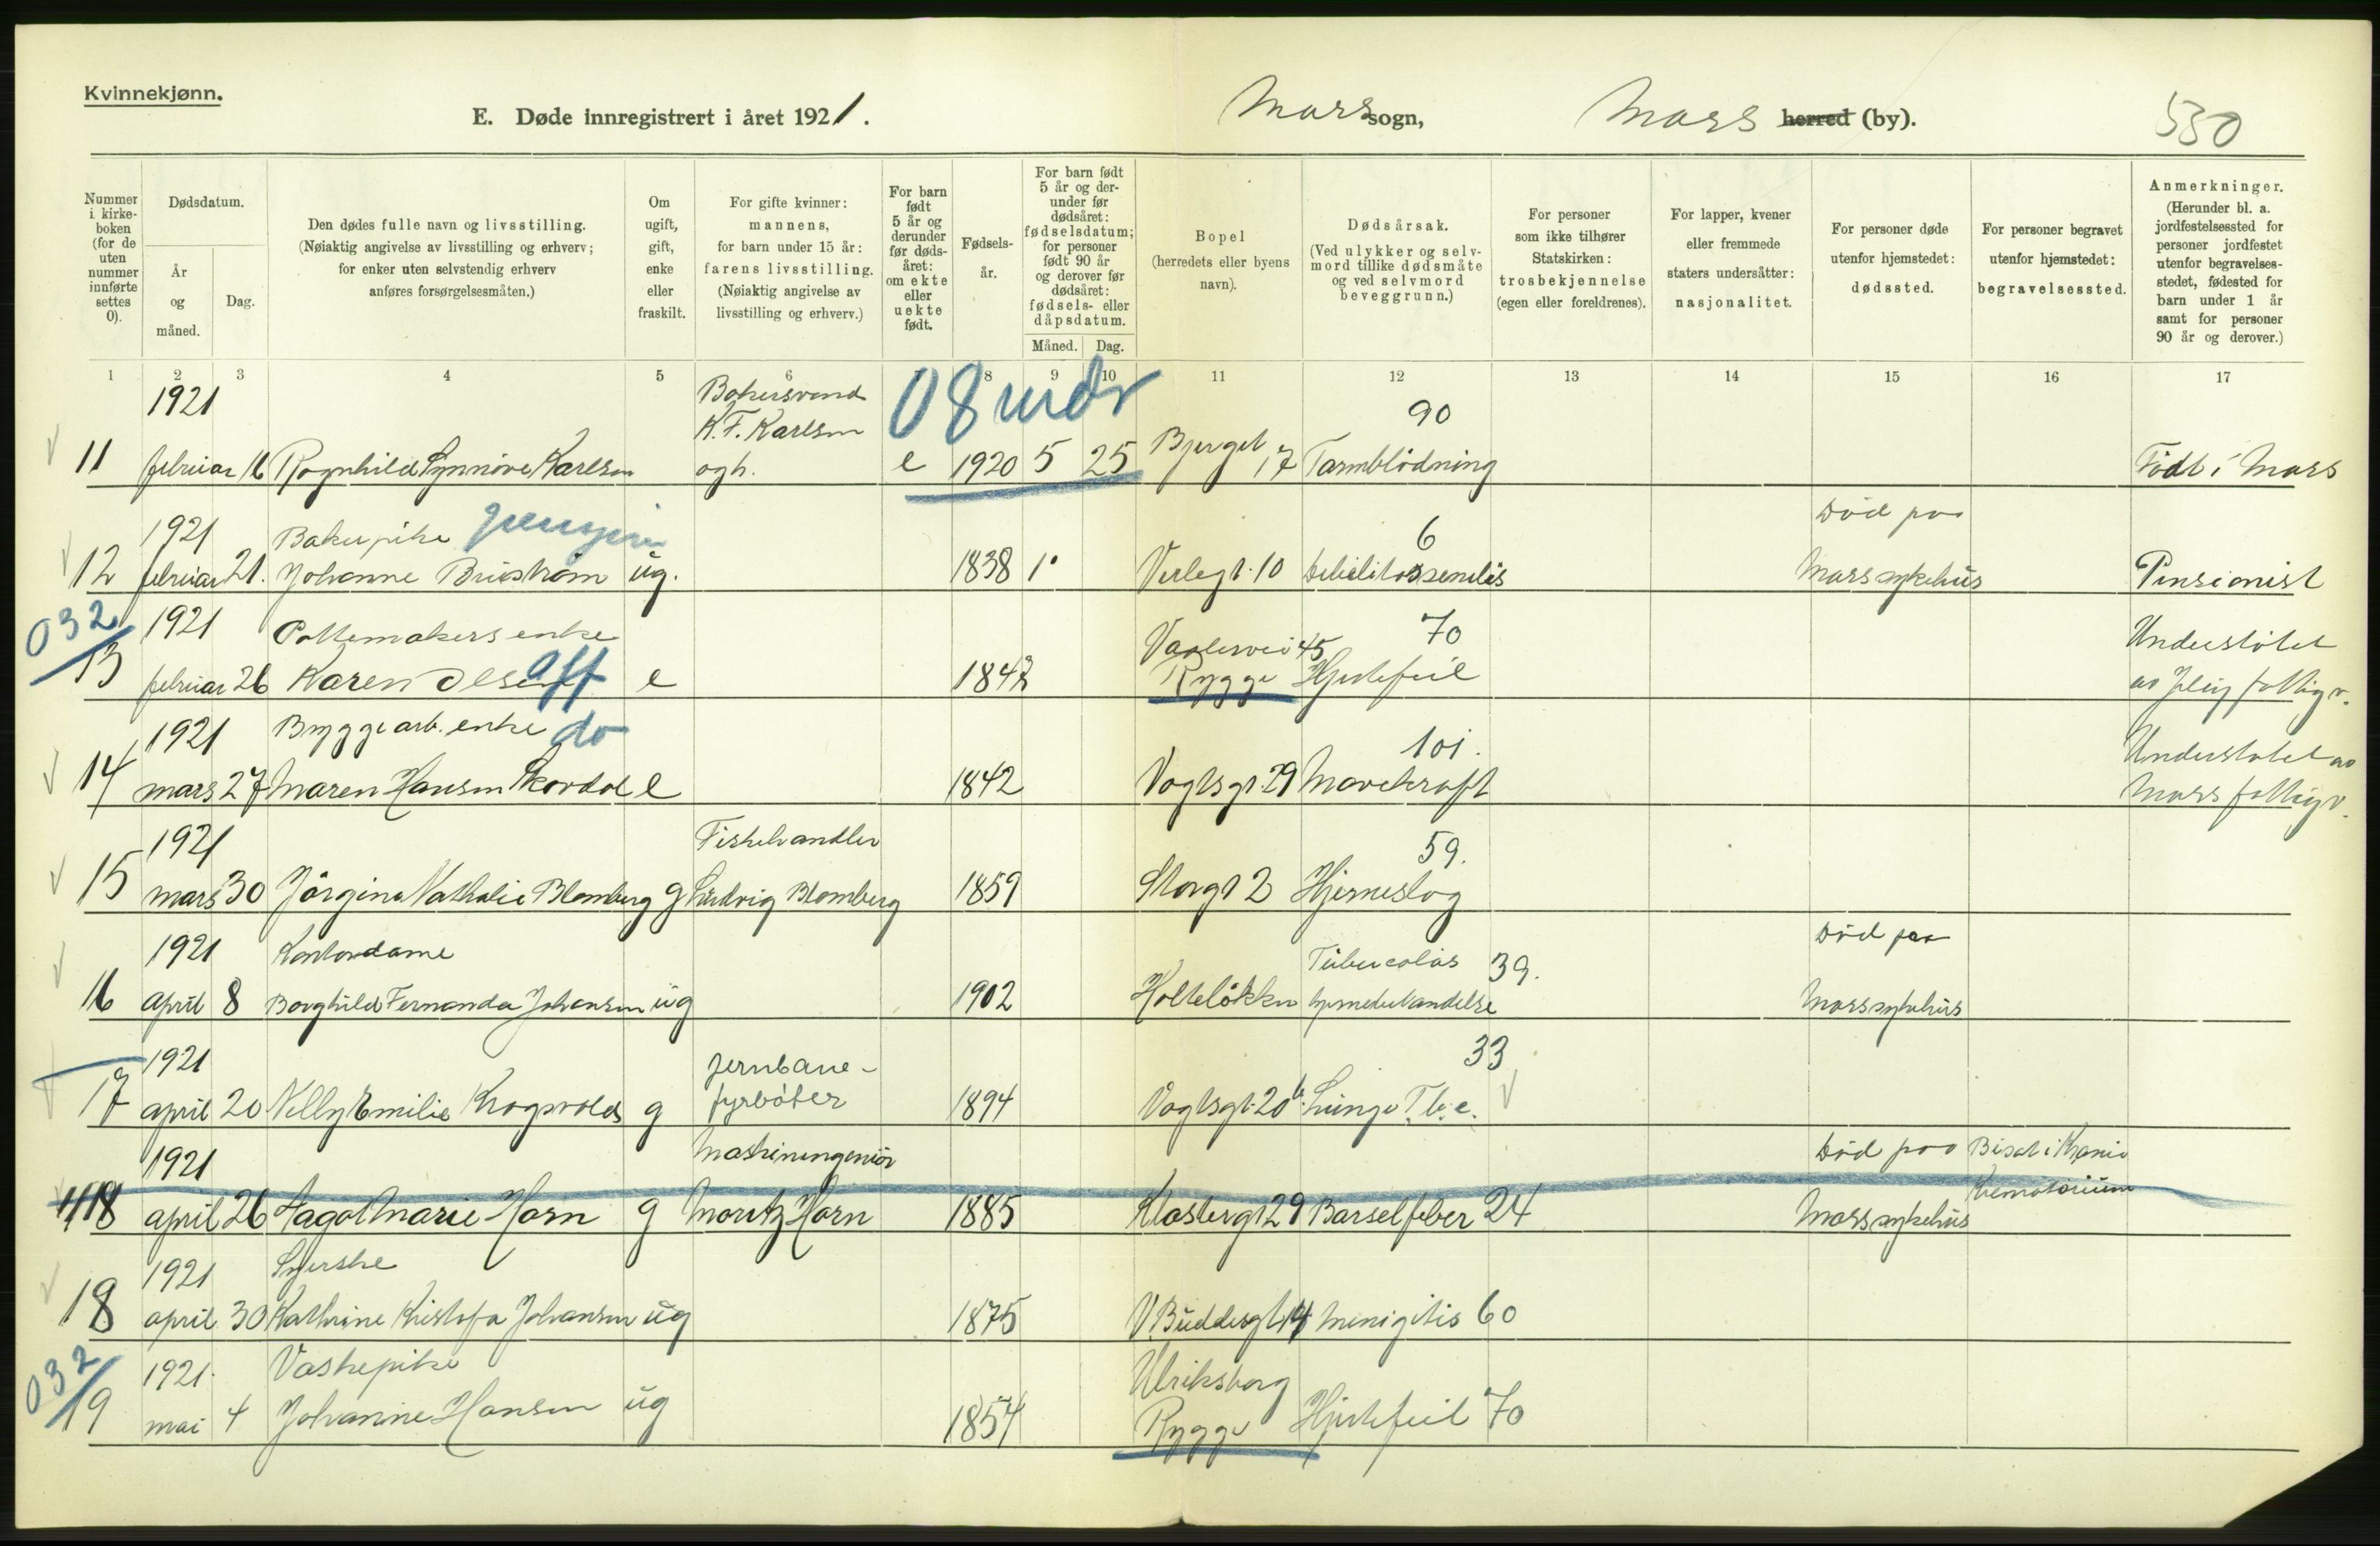 Kvinnekjønn.
E. Døde innregistrert i året 1921.
Moss sogn,
Moss herred (by).
530
Nummer i kirke-boken (for de uten nummer innførte settes 0).
Dødsdatum.
År og måned.
Dag.
Den dødes fulle navn og livsstilling.
(Nøiaktig angivelse av livsstilling og erhverv;
for enker uten selvstendig erhverv
anføres forsørgelsesmåten.)
Om ugift, gift, enke eller fraskilt.
For gifte kvinner:
mannens,
for barn under 15 år:
farens livsstilling.
(Nøiaktig angivelse av
livsstilling og erhverv.)
For barn født 5 år og derunder før døds-året: om ekte eller uekte født.
Fødsels-år.
For barn født 5 år og der-under før dødsåret: fødselsdatum; for personer født 90 år og derover før dødsåret: fødsels- eller dåpsdatum.
Måned. Dag.
Bopel
(herredets eller byens
navn).
Dødsårsak.
(Ved ulykker og selv-
mord tillike dødsmåte
og ved selvmord
beveggrunn.)
For personer
som ikke tilhører
Statskirken:
trosbekjennelse
(egen eller foreldrenes).
For lapper, kvener
eller fremmede
staters undersåtter:
nasjonalitet.
For personer døde
utenfor hjemstedet:
dødssted.
For personer begravet
utenfor hjemstedet:
begravelsessted.
Anmerkninger.
(Herunder bl. a.
jordfestelsessted for
personer jordfestet
utenfor begravelses-
stedet, fødested for
barn under 1 år
samt for personer
90 år og derover.)
1 2 3 4 5 6 7 8 9 10 11 12 13 14 15 16 17
1921 Bakersvend 08 mdr 90
K.F. Karlsen
11 februar 16 Ragnhild Synnöve Karlsen ogh. e 1920 5 25 Bjerget 17 Tarmblödning Födt i Moss
1921 Bakerpike pensjon 6 Död paa
12 februar 21. Johanne Brüström ug. 1838 1. Verlegt. 10 debilitas senilis Moss sykehus Pensionist
032 1921 Pottemakers enke Vaalervei 45 70 Understötet
13 februar 26 Karen Olsen aff e 1842 Rygge Hjertefeil av fattigv.
1921 Bryggearb. enke do 101. Understötet av
14 mars 27 Maren Hansen Skovdal e 1842 Vogtsgt. 29 Mavekraft Moss fattigv.
1921 Fiskehandler 59.
15 mars 30 Jörgine Nathalie Blomberg g Ludvig Blomberg 1859 Storgt 2 Hjerneslag
1921 Kontordame Tuberculøs 39. Död paa
16 april 8 Borghild Fernanda Johansen ug 1902 Holteløkken hjernebetændelse Moss sykehus
1921 Jernbane- 33
17 april 20 Nelly Emilie Krogsvold g fyrböter 1894 Vogtsgt. 20 b. Lunge T.b.c.
1921 Maskiningeniör Död paa Bisat i Krania
18 april 26 Aagot Marie Horn g Moritz Horn 1885 Klostergt 29 Barselfeber 24 Moss sykehus Krematorium
1921 Syerske
18 april 30 Kathrine Kristofa Johansen ug 1875 V. Buddesgt 14 Menigitis 60
032 1921. Vaskepike Ulriksborg
19 mai 4 Johanne Hansen ug 1854 Rygge Hjertefeil 70